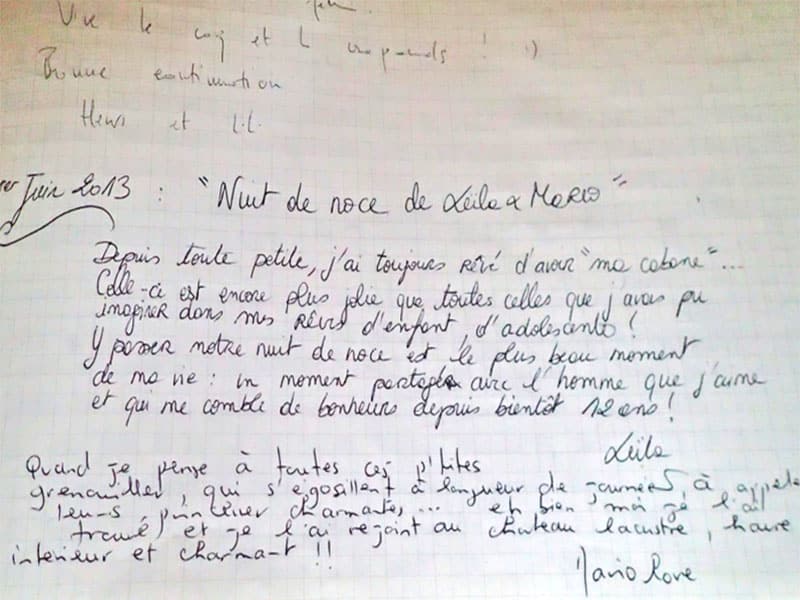 Vive le coq et l crapauds ! :)
Bonne continuation
Henri et L.L.
1er Juin 2013 : "Nuit de noce de Leïla & Mario"
Depuis toute petite, j'ai toujours rêvé d'avoir "ma cabane"...
Celle-ci est encore plus jolie que toutes celles que j'avais pu
imaginer dans mes rêves d'enfant, d'adolescente !
Y passer notre nuit de noce est le plus beau moment
de ma vie : un moment partagé avec l'homme que j'aime
et qui me comble de bonheurs depuis bientôt 12 ans !
Leïla
Quand je pense à toutes ces p'tites
grenouilles, qui s'égosillent à longueur de journées, à appele
leurs charmantes... eh bien moi je l'ai
trouvé, et je l'ai rejoint au chateau lacustre, havre
interieur et charmant !!
Mario